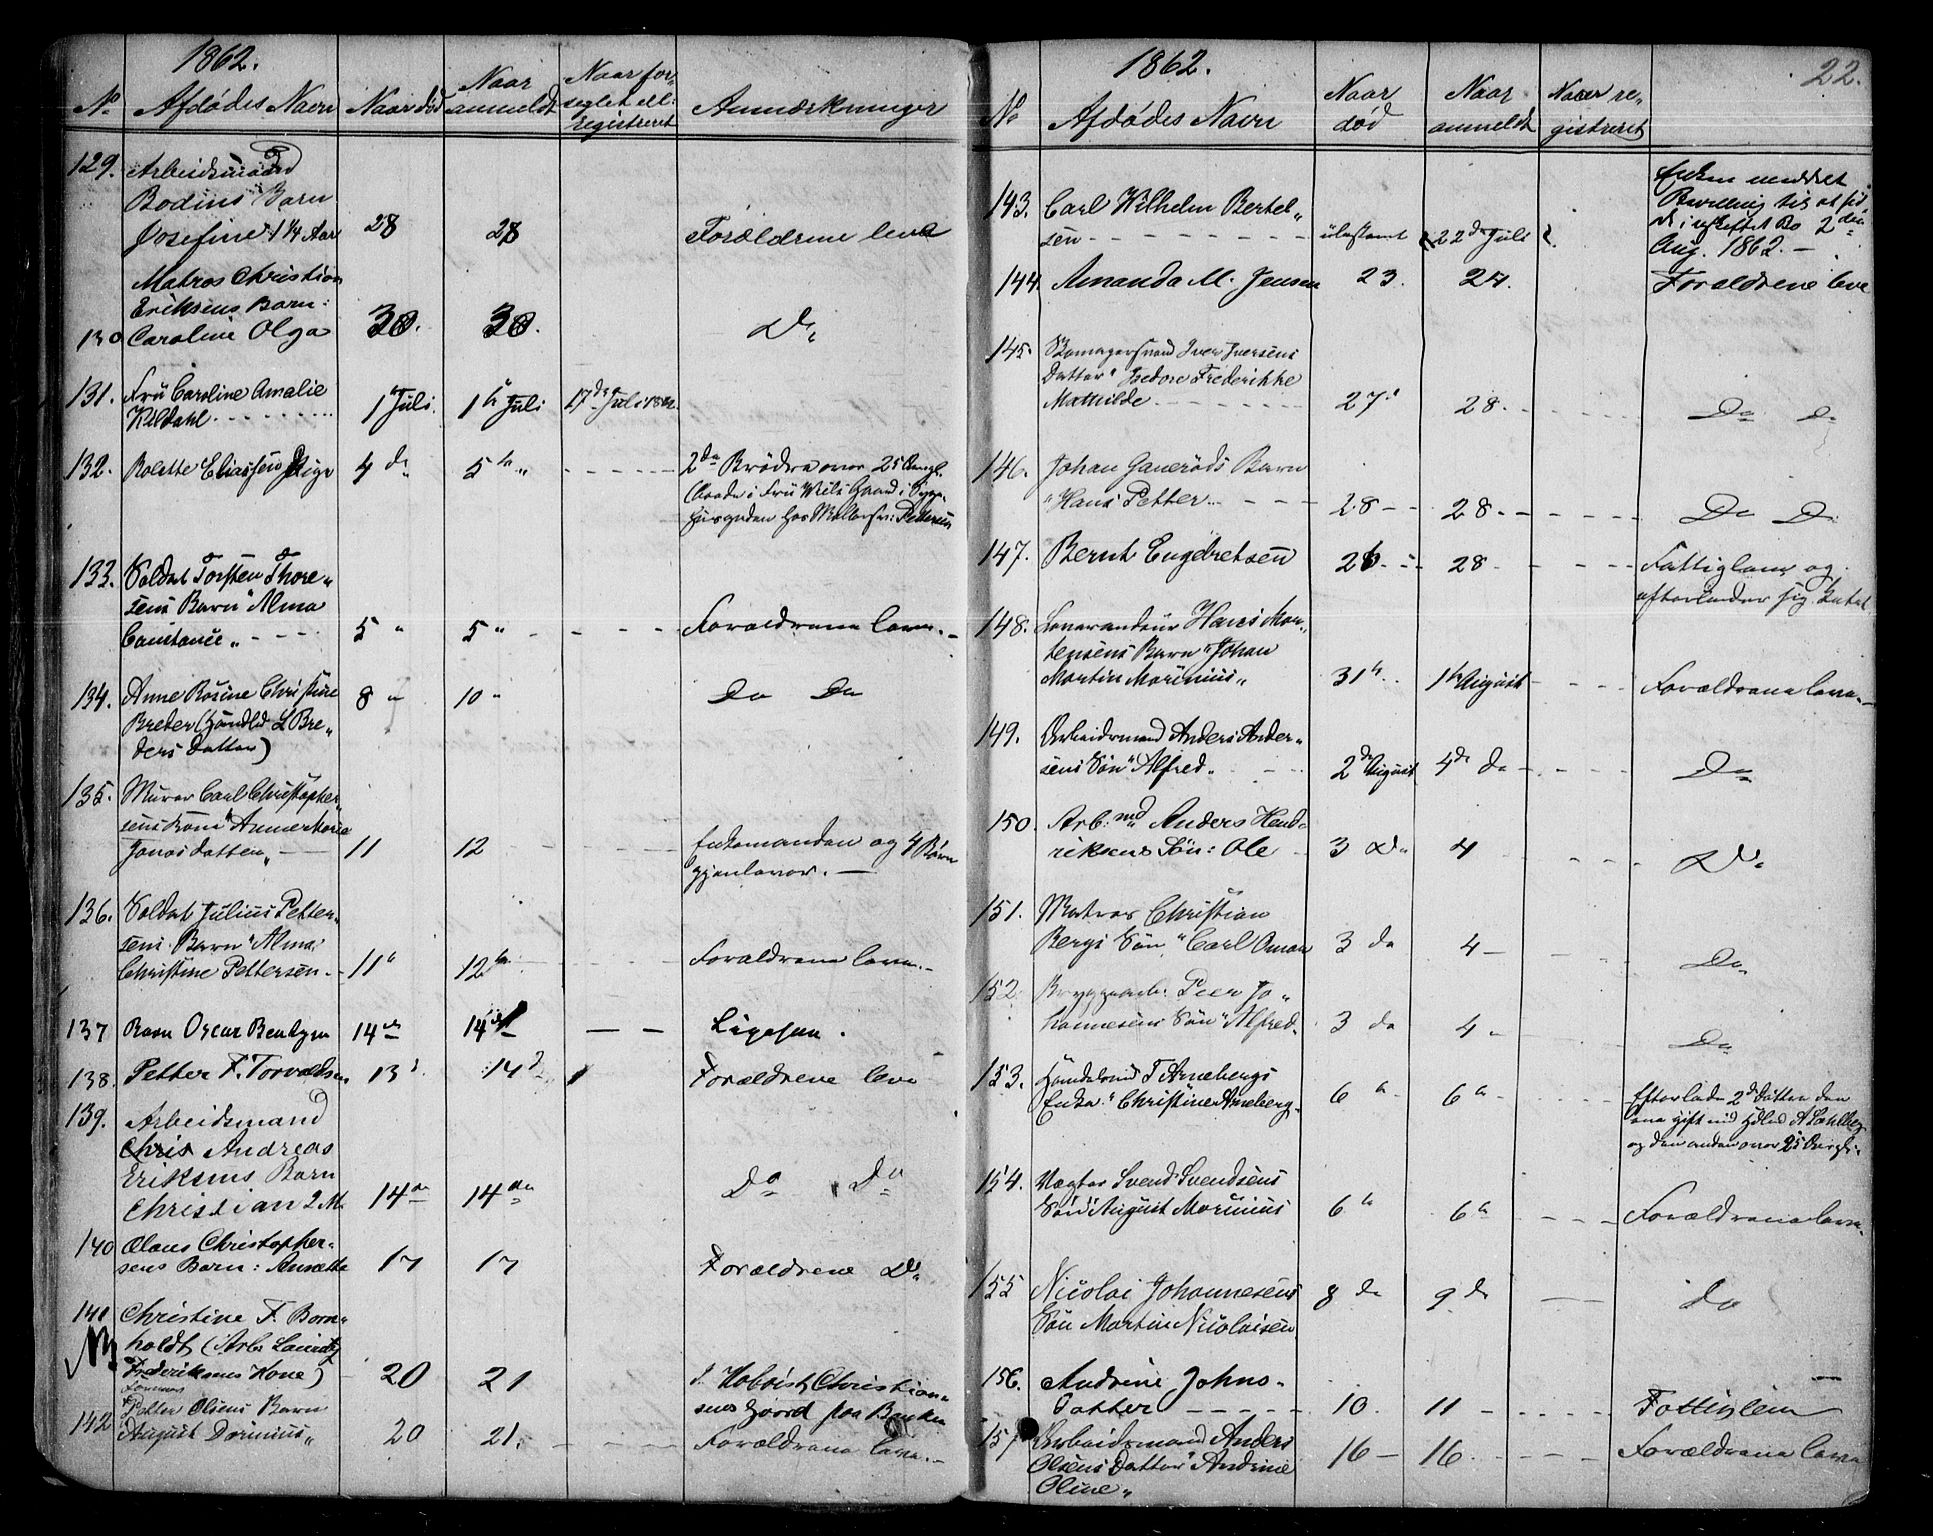 1862.
No Afdødes Navn Naar död Naar anmeldt Naar forseglet ell: registreret Anmærkninger
129. Arbeidsmand
Bodins Barn
Josefine 1 1/4 Aar 28 28 Forældrene leve
Matros Christian
Eriksens Barn:
130 Caroline Olga 30. 30. Do
131. Fru Caroline Amalie
Kildahl 1 Juli. 1 Juli 17de Juli 1862.
132. Rolette Eliassen Pige 4 do 5te " 2de Brödre over 25 Aar
133. Soldat Torsten Thore"
sens Barn "Alma
Constance" 5 " 5 " Forældrene leve.
134. Anne Rosine Christine
Breder (Handlsb L. Bre"
ders Datter) 8 " 10 " Do Do
135. Murer Carl Christopher"
sens Kone "Anne Marie
Jonas datter" 11 12 Enkemanden og 4 Börn
gjenlever.
136. Soldat Julius Petter"
sens Barn "Alma
Christine Pettersen 11 " 12te Forældrene leve.
137 Barn Oscar Bentzen 14de 14de Ligesaa.
138. Petter F. Torvaldsen 13 14 Forældrene leve
139. Arbeidsmand
Chris Andreas
Eriksens Barn
Christian 2 M. 14de 14de Do Do
140 Olaus Christopher-
sens Barn: Annette 17 17 Forældrene Do
141 Christine F. Born-
holdt (Arb. Lauritz
Frederiksens Kone) 20 21 I Hoboist Christian-
sens Gaard paa Banken
142 Petter Olsens Barn
August Dorinius" 20 21. Forældrene leve.
1862. 22.
No Afdødes Navn Naar död Naar anmeldt Naar registreret
143. Carl Wilhelm Bertel"
sen ubestemt 22de Juli Enken meddelt
Bevilling til at sid-
de i uskiftet Bo 2den
Aug. 1862.
144. Amanda M. Jensen 23. 24. Forældrene leve
145. Skomagersvend Iver Iversens
Datter "Isedore Frederikke
Mathilde 27 " 28. Do Do
146. Johan Ganeröds Barn
"Hans Petter 28 28. Do Do
147. Bernt Engebretsen 26 28 Fattiglem og
efterlader sig Intet
148. Leverandeur Hans Mor"
tensens Barn "Johan
Martin Morinius" 31te 1te August Forældrene leve.
149. Arbeidsmand Anders Ander"
sens Sön "Alfred" 2de August 4de do Do
150. Arb: md Anders Hend-
riksens Sön: Ole 3 Do 4 Do
151. Matros Christian
Bergs Sön "Carl Oman 3 do 4 Do
152. Bryggearb: Peer Jo"
hannesens Sön "Alfred 3 do 4 Do
153. Handelsmd T. Arnebergs
Enke "Christine Arneberg. 6 " 6 " Efterlader 2de Döttre den
ene gift med
og den anden over 25
154. Vægter Svend Svendsens
Sön "August Morinius 6 " 6 " Forældrene leve
155 Nicolai Johannesens
Sön Martin Nicolaisen 8 do 9 do do
156. Andrine Johns-
datter 10. 11 Fattiglem
157 Arbeidsmand Anders
Olsens Datter "Andrine
Oline" 16 16. Forældrene leve